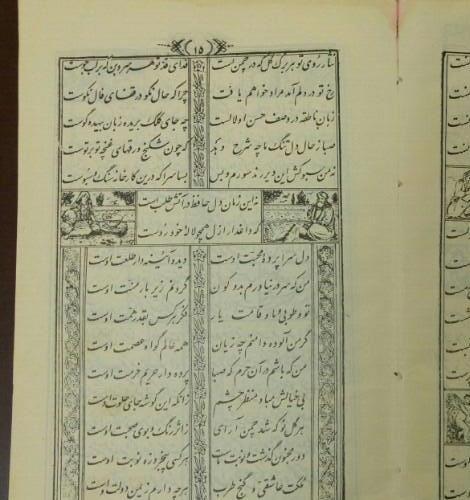 ۱۵
نثار روی تو هر برگ گل که در چمن است فدای قد تو هر سروبن که بر لب جوست
رخ تو در دلم آمد مراد خواهم یافت چرا که حال نکو در قفای فال نکوست
زبان ناطقه در وصف حسن او لالست چه جای کلک بریده زبان بیهده گوست
صبا ز حال دل تنگ ما چه شرح دهد که چون شکنج ورقهای غنچه تو بر توست
نه من سبوکش این دیر رند سوزم و بس بسا سرا که درین کارخانه سنگ و سبوست
نه این زمان دل حافظ در آتش طلب است
که داغدار ازل همچو لاله خودروست
دل سراپرده محبت اوست دیده آئینه دار طلعت اوست
من که سر در نیاورم بدو کون گردنم زیر بار منت اوست
تو و طوبی و ما و قامت یار فکر هرکس بقدر همت اوست
گر من آلوده دامنم چه زیان همه عالم گواه عصمت اوست
من که باشم در آن حرم که صبا پرده دار حریم حرمت اوست
بی خیالش مباد منظر چشم زانکه این گوشه جای خلوت اوست
هر گل نو که شد چمن آرای ز اثر رنگ و بوی صحبت اوست
دور مجنون گذشت و نوبت ماست هر کسی پنج روزه نوبت اوست
ملکت عاشقی و گنج طرب هرچه دارم ز یمن دولت اوست